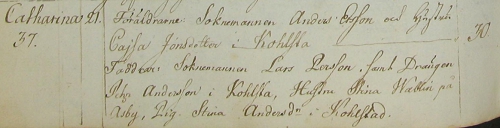 Catharina 21. Föräldrarne: Soknemannen Anders Ersson och Hustru
37. Cajsa Jonsdotter i Kohlsta 30.
Faddrar: Soknemannen Lars Persson, samt Drängen
Joh: Andersson i Kohlsta, Hustru Stina Wallin på
Åsby, Pig. Stina Andersdr i Kohlstad.